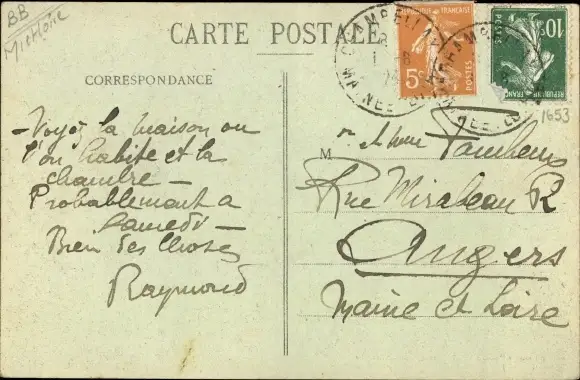 BB
CARTE POSTALE
CORRESPONDANCE
RÉPUBLIQUE FRANÇAISE
5c
POSTES
10c
POSTES
RÉPUBLIQUE FRANÇAISE
1653
- Voyez la maison ou
l'on habite et la
chambre -
Probablement a
Samedi -
Bien des choses
Raymond
M r. et Mme
Rue Mirabeau
Angers
Maine et Loire